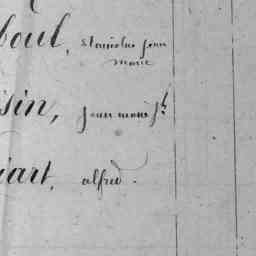 boul, Stanislas jean
marie
sin, jean marie jh
iart, alfred.